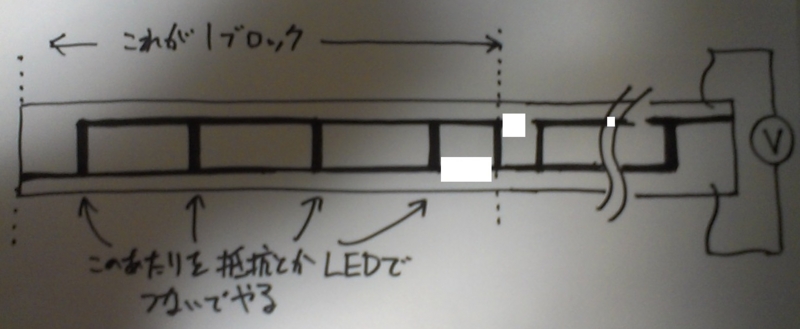 これが1ブロック
V
このあたりを抵抗とかLEDで
つないでやる